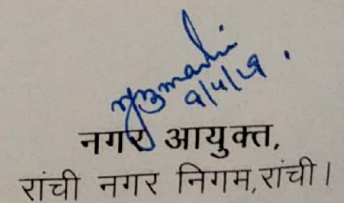 9/4/19.
नगर आयुक्त,
रांची नगर निगम,रांची।